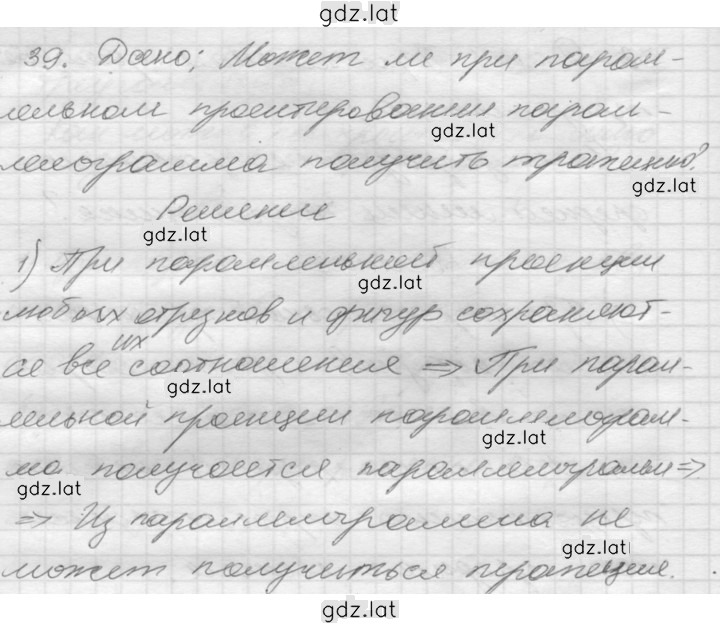 gdz.lat
39. Дано: Может ли при парал-
лельном проектировании парал-
gdz.lat
лелограмма получить трапецию?
gdz.lat
Решение
gdz.lat
1) При параллельной проекции
gdz.lat
любых отрезков и фигур сохраняют-
ся все их соотношения => При парал-
gdz.lat
лельной проекции параллелограм-
gdz.lat
ма получается параллелограмм =>
gdz.lat
=> Из параллелограмма не
gdz.lat
может получиться трапеция.
gdz.lat